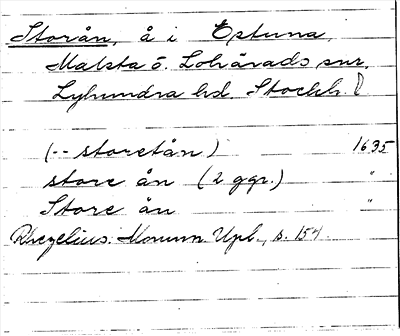 Storån, å i Estuna,
Malsta o. Lohärads snr,
Lyhundra hd. Stockh.
(-- storetån) 1635
store ån (2 ggr.) "
Store ån "
Rhezelius. Monum. Upl., s. 154